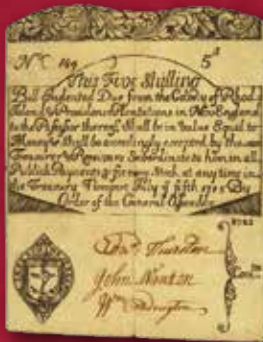 No 149 5s
This Five Shilling
Bill Indented Due from the Colony of Rhod
Island & Providence Plantations in New England
to the Possessor thereof Shall be in Value Equal to
Money & Shall be accordingly accepted by the
Treasurer & Receivers Subordinate to him in all
Publick Payments & for any Stock at any time in
the Treasury Newport July y fifth 1710 By
Order of the General Assembly
Edn Thurston
John Wanton
Wm Codington
Com